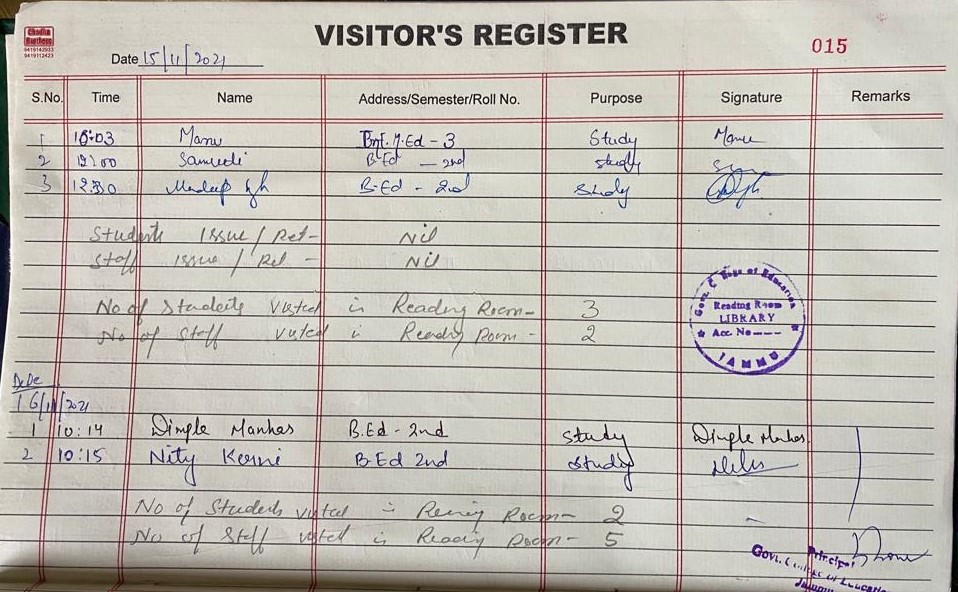 Chadha Brothers
9419142933
9419112423
VISITOR'S REGISTER
015
Date 15/11/2021
S.No. Time Name Address/Semester/Roll No. Purpose Signature Remarks
1 10:03 Manu Int. M.Ed - 3 Study Manu
2 12:00 B-Ed - 2nd study
3 12:30 B-Ed - 2nd Study
Students Issue / Ret - Nil
Staff issue / Ret - Nil
No of Students visted in Reading Room - 3
No of Staff visted in Reading Room - 2
Govt. College of Education
Reading Room
LIBRARY
Acc. No
JAMMU
Date
16/11/2021
1 10:14 Dimple Manhas B.Ed - 2nd Study Dimple Manhas
2 10:15 Nity B-Ed 2nd Study
No of Students visted in Room - 2
No of Staff visted in Reading Room - 5
Principal
Govt. College of Education
Jammu